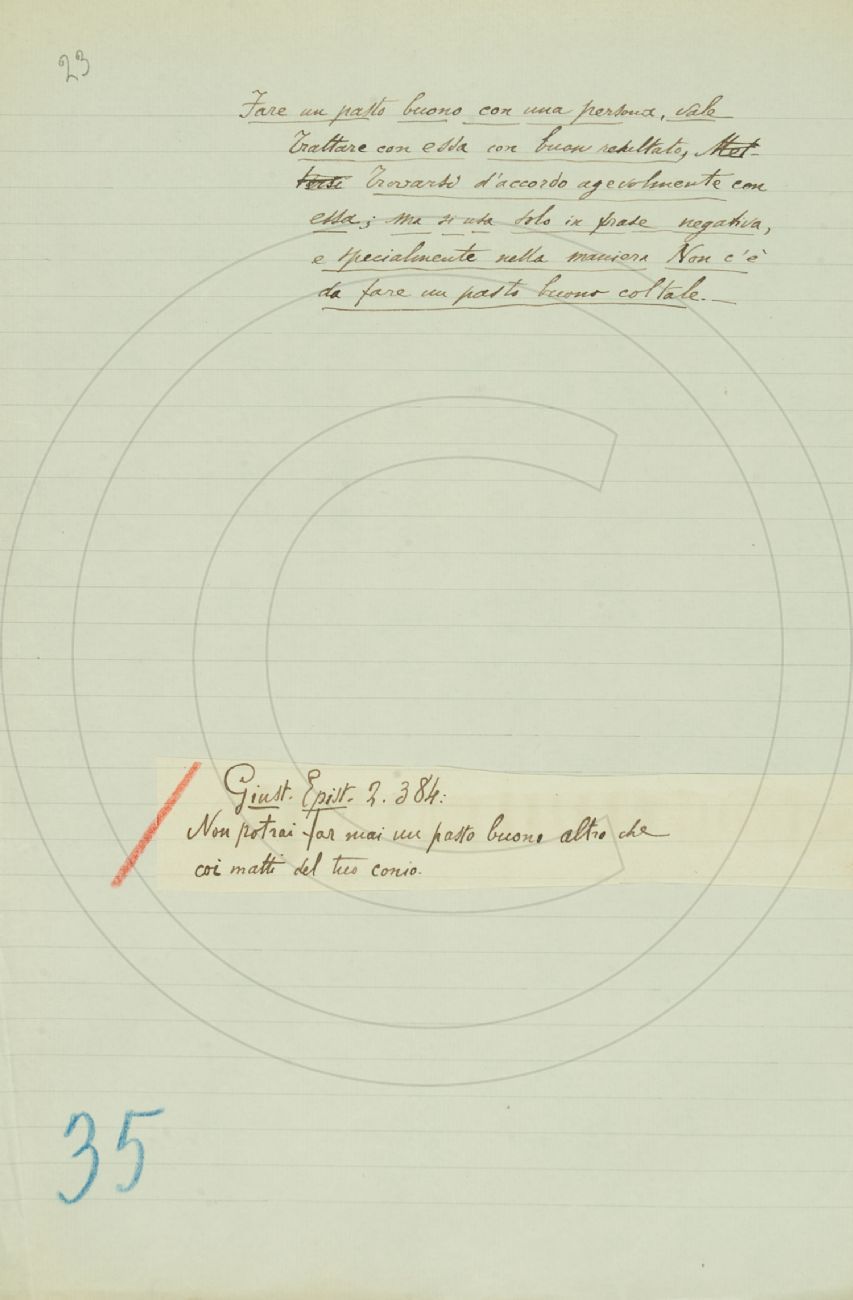 23
Fare un pasto buono con una persona, vale
Trattare con essa con buon resultato, Met-
tersi Trovarsi d'accordo agevolmente con
essa; ma si usa solo in frase negativa,
e specialmente nella maniera Non c'è
da fare un pasto buono col tale.
Giust. Epist. 2. 384:
Non potrai far mai un pasto buono altro che
coi matti del tuo conio.
35